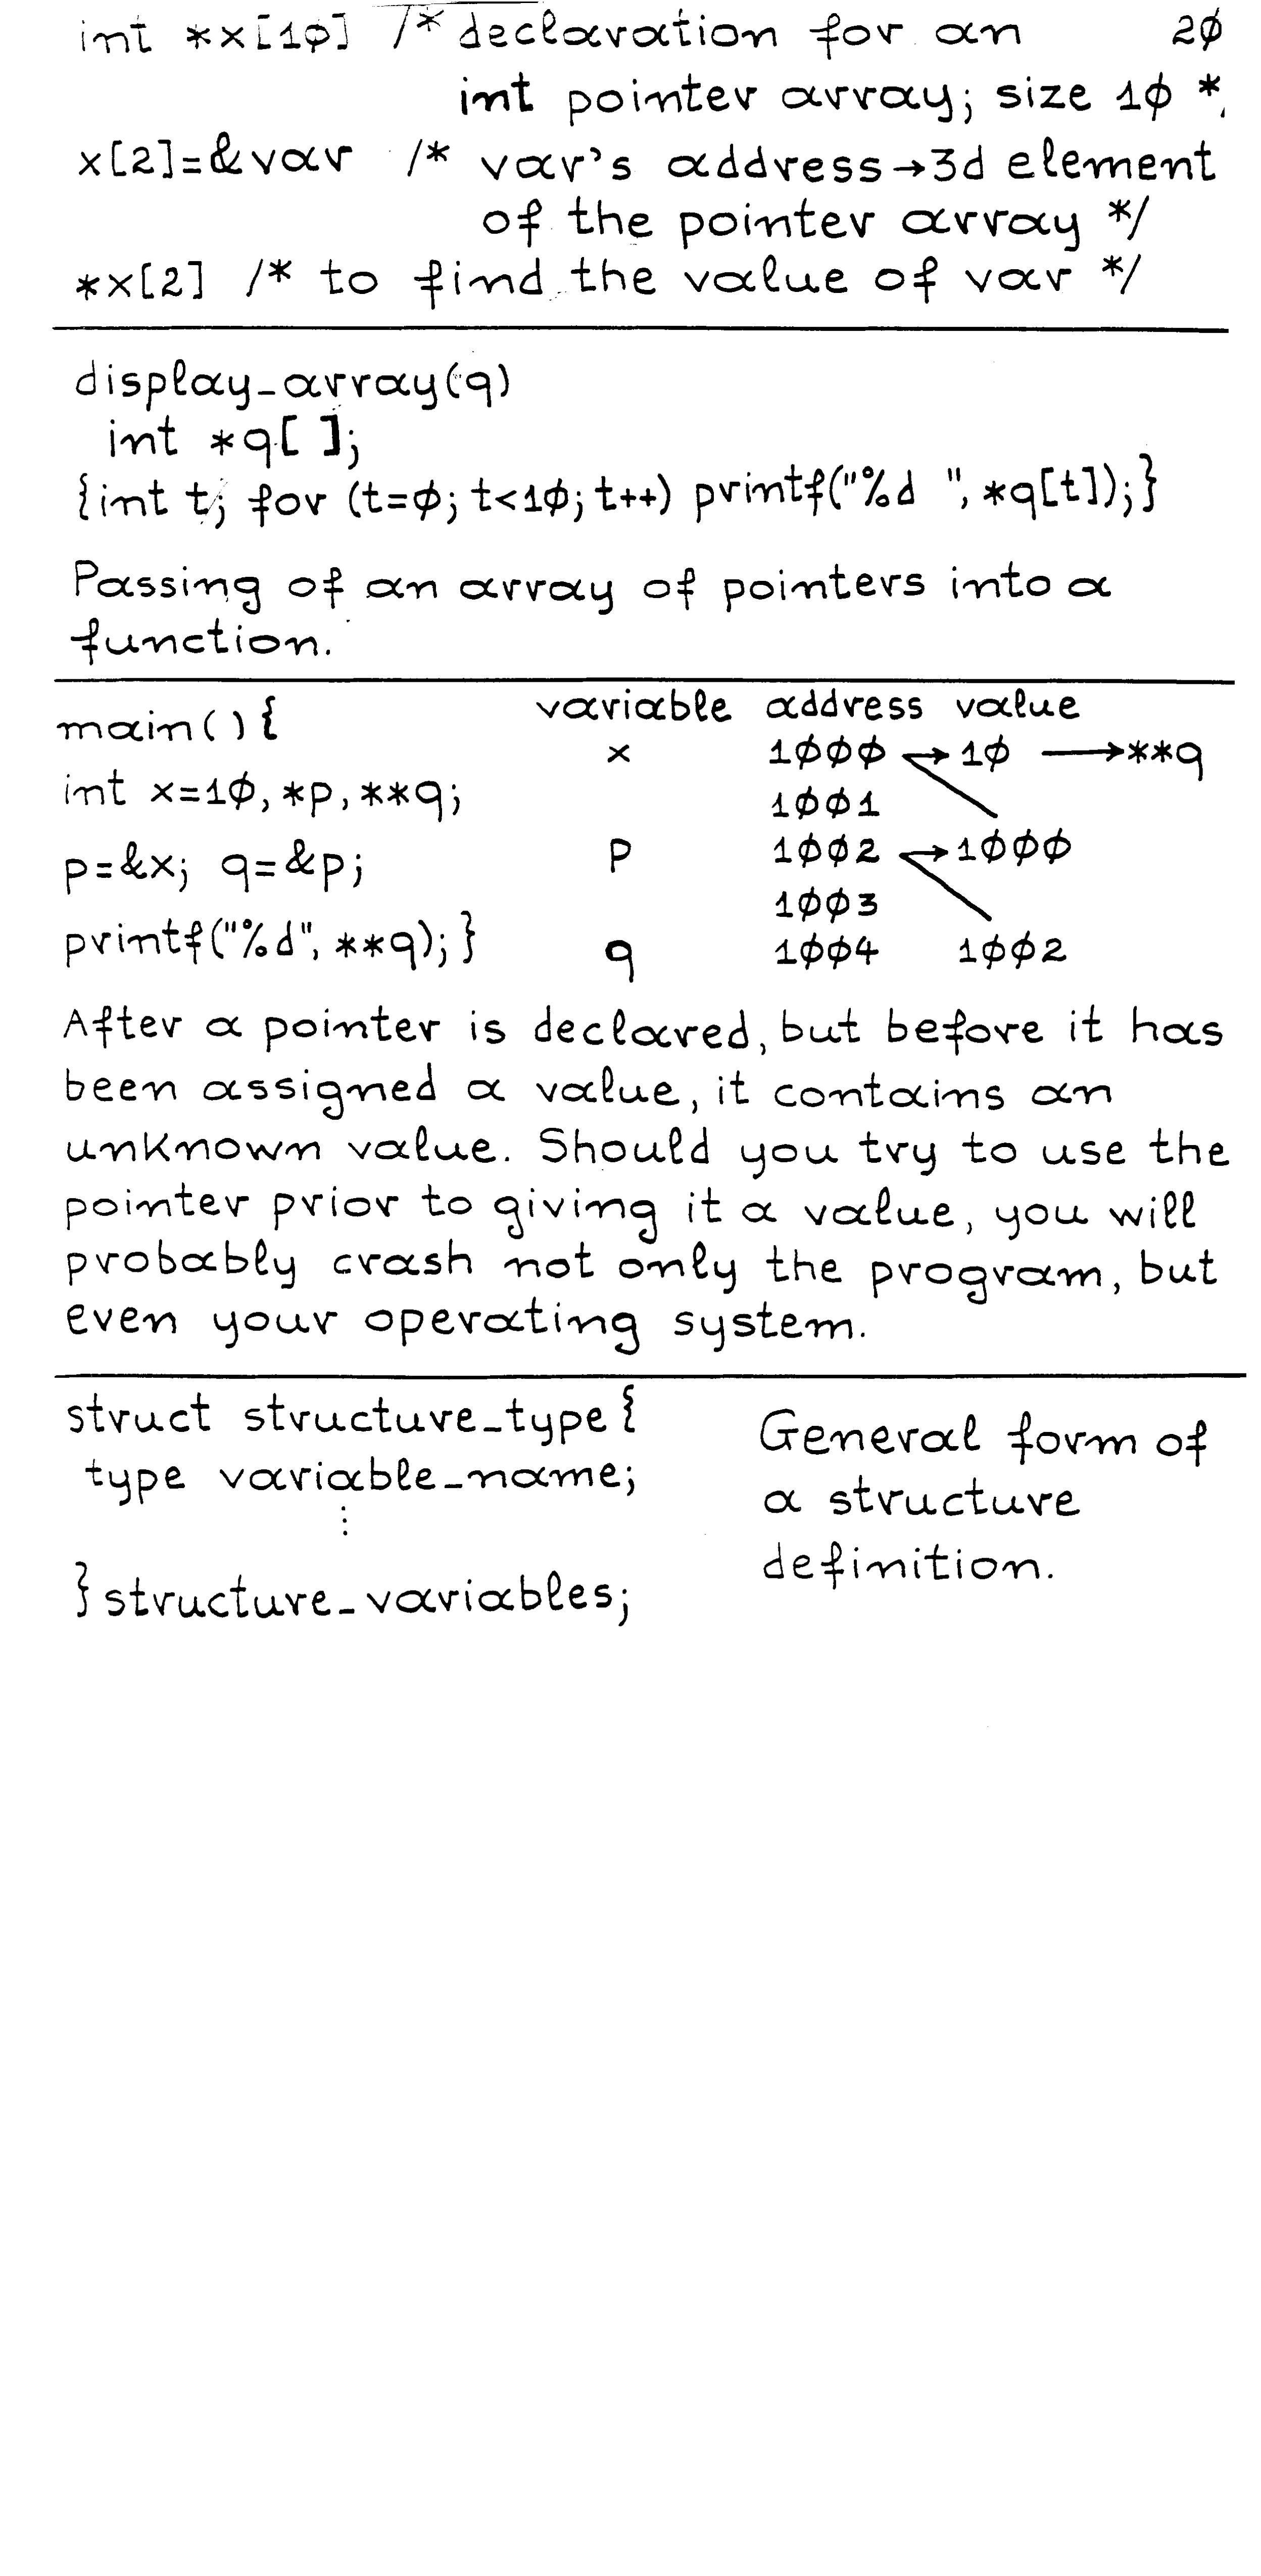 int *x[1ø] /* declaration for an 2ø
int pointer array; size 1ø *
x[2]=&var /* var's address→3d element
of the pointer array */
*x[2] /* to find the value of var */
display_array(q)
int *q[ ];
{int t; for (t=ø; t<1ø; t++) printf("%d ", *q[t]);}
Passing of an array of pointers into a
function.
main(){ variable address value
x 1øøø → 1ø → **q
int x=1ø, *p, **q; 1øø1
p=&x; q=&p; p 1øø2 → 1øøø
1øø3
printf("%d", **q);} q 1øø4 1øø2
After a pointer is declared, but before it has
been assigned a value, it contains an
unknown value. Should you try to use the
pointer prior to giving it a value, you will
probably crash not only the program, but
even your operating system.
struct structure_type{
type variable_name;
⋮
}structure_variables;
General form of
a structure
definition.